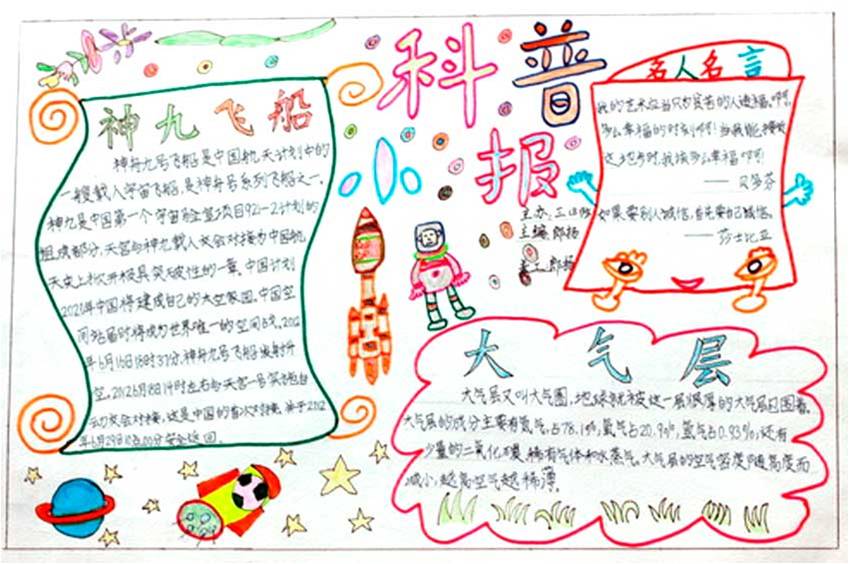 科普
小报
主办:三
主编:郎杨
美工:郎杨
神九飞船
神舟九号飞船是中国航天计划中的
一艘载人宇宙飞船,是神舟号系列飞船之一。
神九是中国第一个宇宙实验室项目921-2计划的
组成部分,天宫与神九载人交会对接为中国航
天史上掀开极具突破性的一章。中国计划
2020年中国将建成自己的太空家园,中国空
间站届时将成为世界唯一的空间站。2012
年6月16日18时37分,神舟九号飞船发射升
空。2012年6月18日14时左右与天宫一号实施自
动交会对接,这是中国的首次对接,并于2012
年6月29日10点00分安全返回。
名人名言
我的艺术应当只为贫苦的人造福。啊,
多么幸福的时刻啊!当我能接近
这地步时,我该多么幸福啊!
——贝多芬
如果要别人诚信,首先要自己诚信。
——莎士比亚
大气层
大气层又叫大气圈,地球就被这一层很厚的大气层包围着。
大气层的成分主要有氮气,占78.1%,氧气占20.9%,氩气占0.93%,还有
少量的二氧化碳、稀有气体和水蒸气。大气层的空气密度随高度而
减小,越高空气越稀薄。